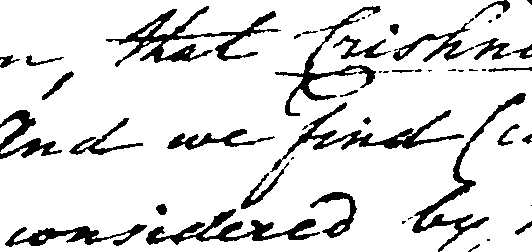 n, that Crishna
And we find (c
considered by